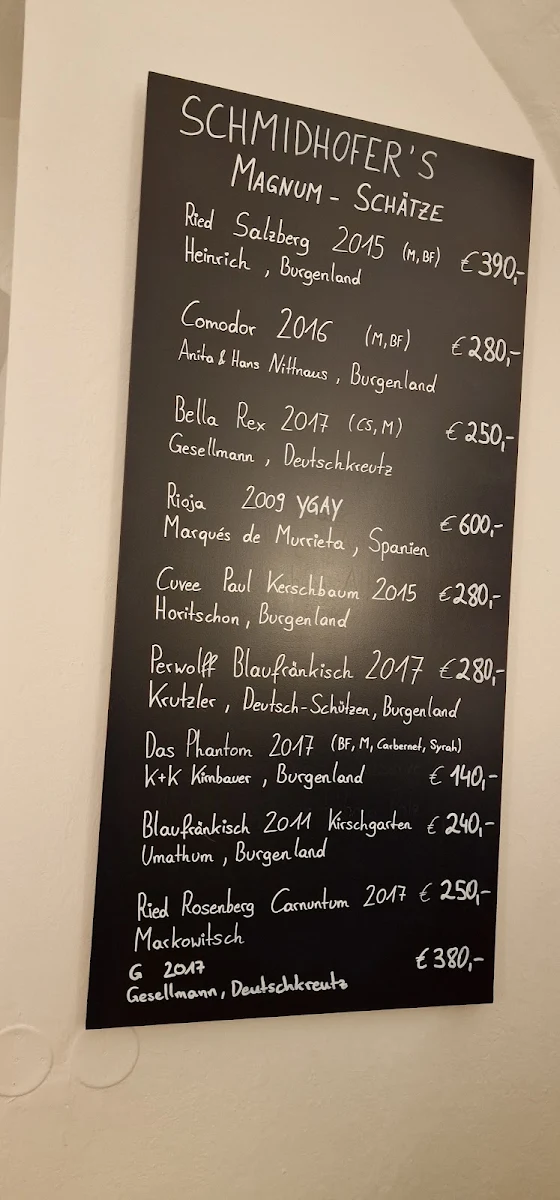 SCHMIDHOFER'S
MAGNUM - SCHÄTZE
Ried Salzberg 2015 (M, BF) € 390,-
Heinrich , Burgenland
Comodor 2016 (M, BF) € 280,-
Anita & Hans Nittnaus , Burgenland
Bella Rex 2017 (CS, M) € 250,-
Gesellmann , Deutschkreutz
Rioja 2009 YGAY € 600,-
Marqués de Murrieta , Spanien
Cuvee Paul Kerschbaum 2015 € 280,-
Horitschon , Burgenland
Perwolff Blaufränkisch 2017 € 280,-
Krutzler , Deutsch-Schützen, Burgenland
Das Phantom 2017 (BF, M, Carbernet, Syrah)
K+K Kirnbauer , Burgenland € 140,-
Blaufränkisch 2011 Kirschgarten € 240,-
Umathum , Burgenland
Ried Rosenberg Carnuntum 2017 € 250,-
Markowitsch
G 2017 € 380,-
Gesellmann, Deutschkreutz